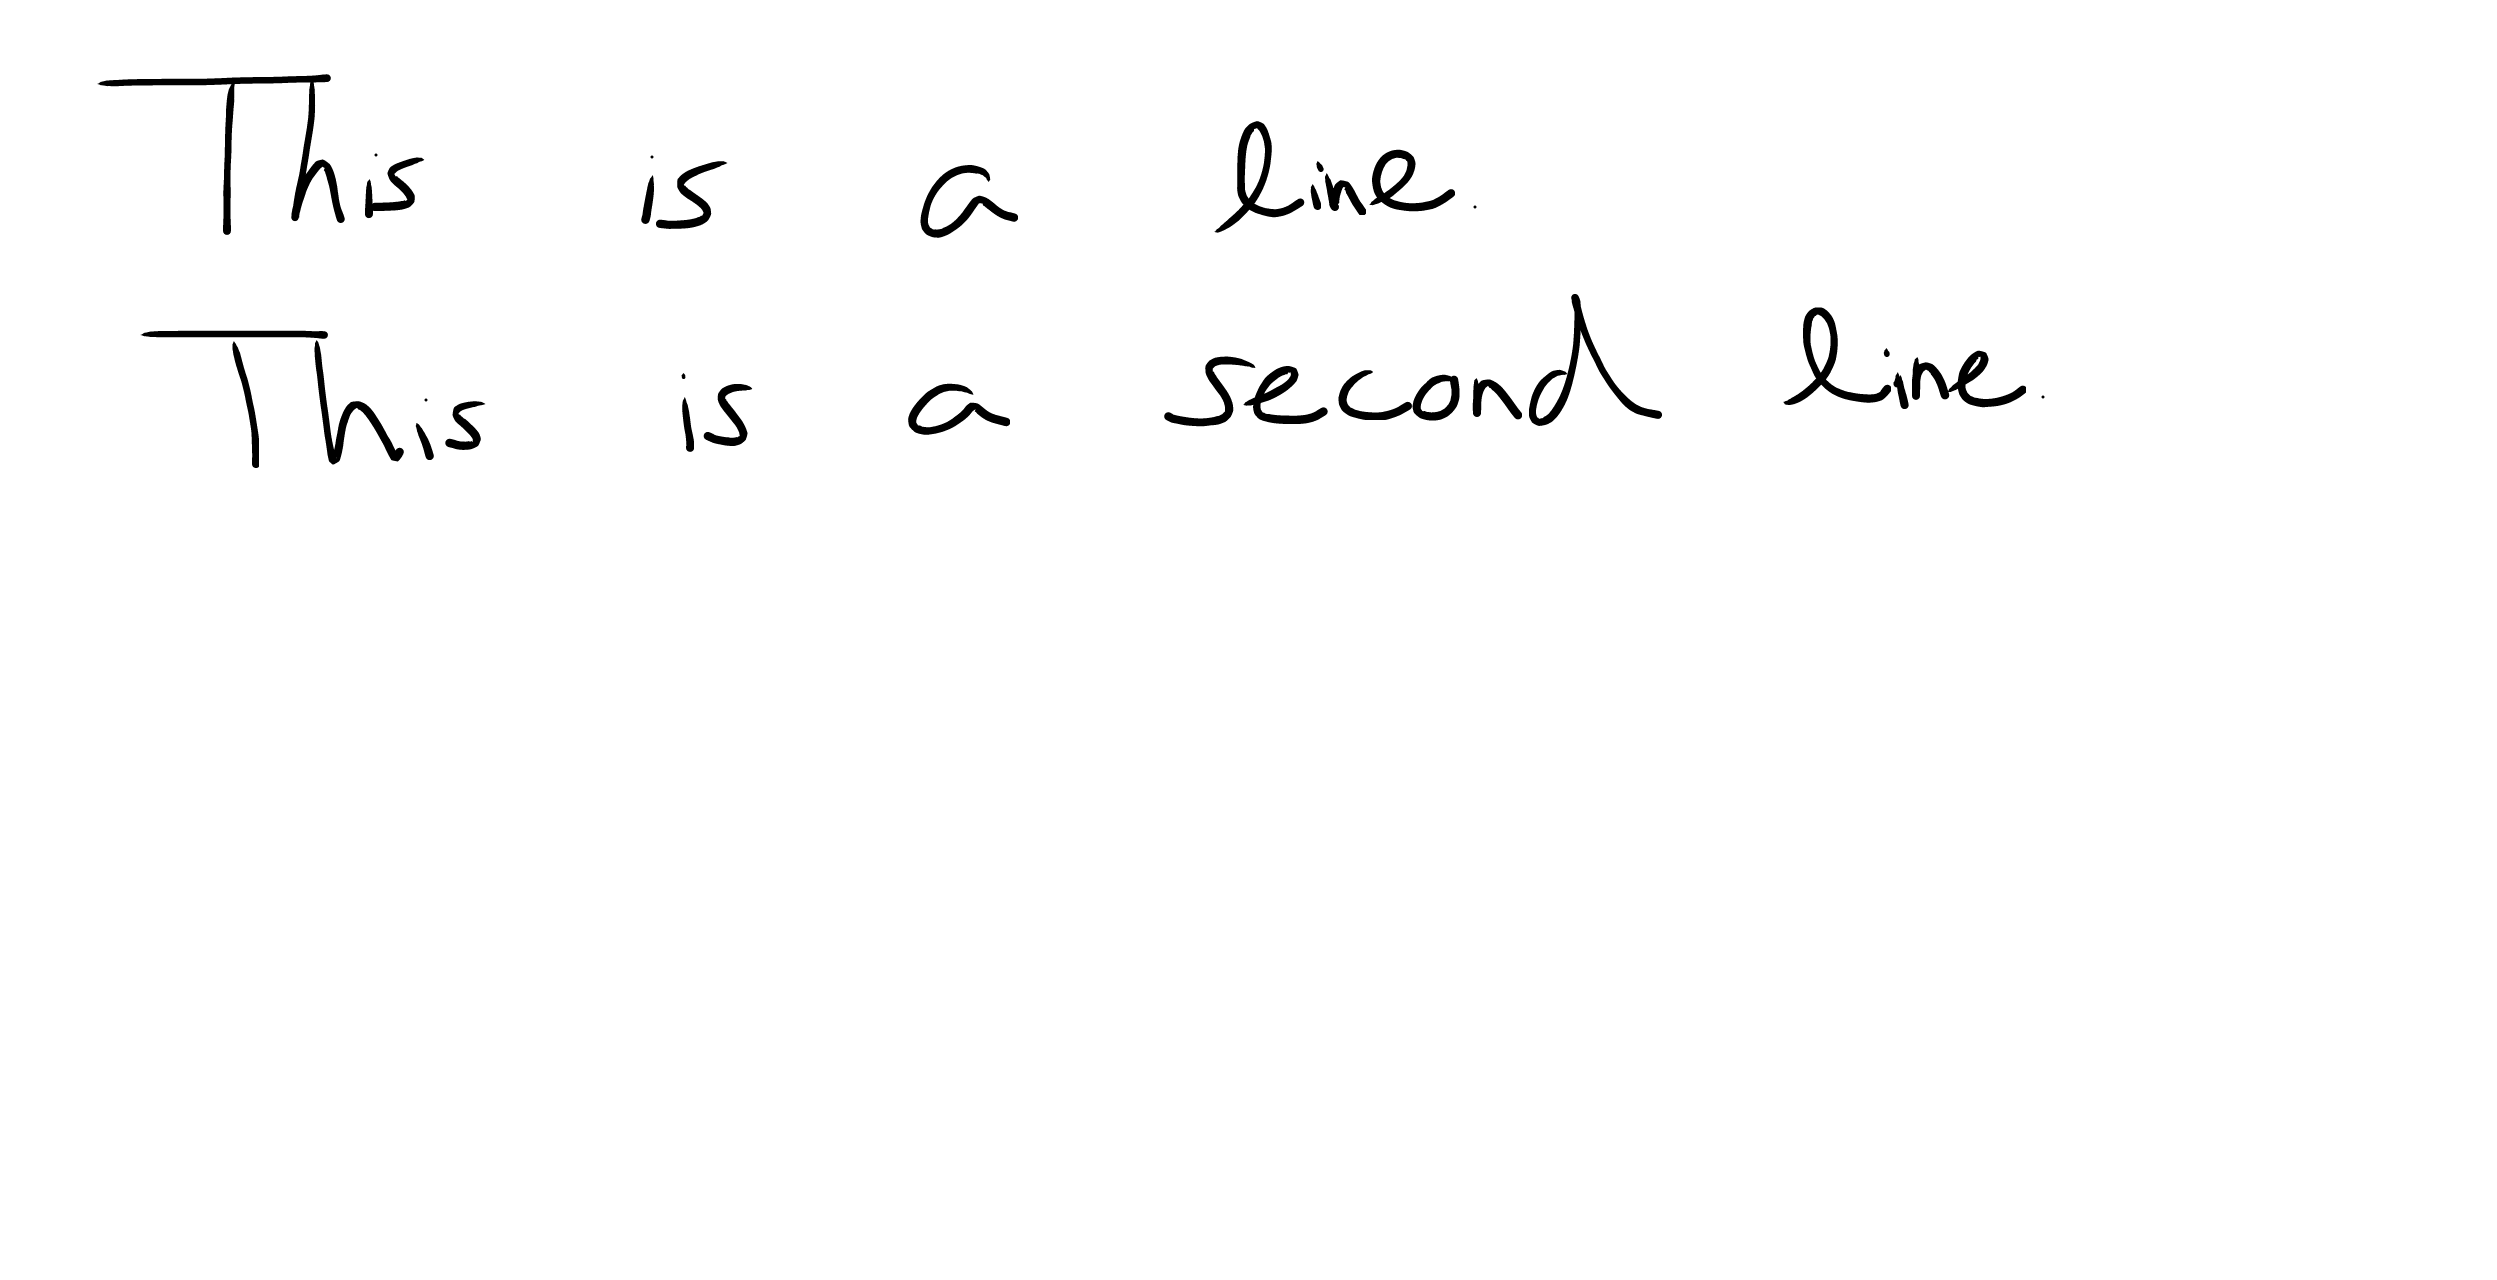 This is a line.
This is a second line.